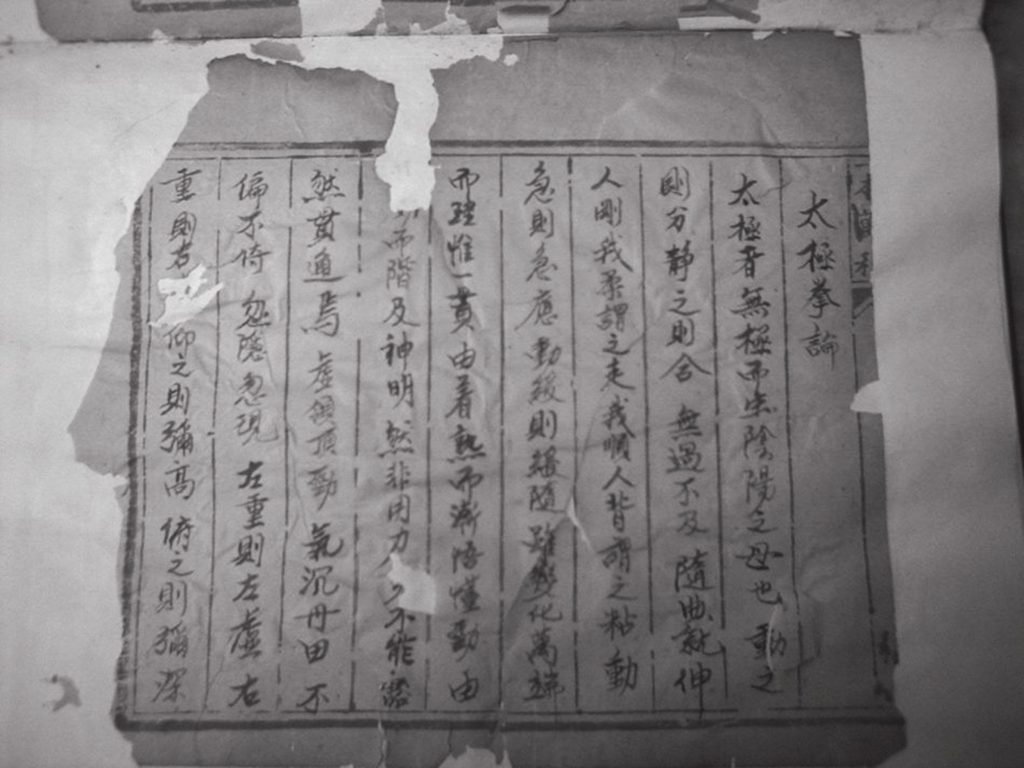 太極拳論
太極者無極而生陰陽之母也 動之
則分靜之則合 無過不及 隨曲就伸
人剛我柔謂之走我順人背謂之粘 動
急則急應動緩則緩隨雖變化萬端
而理惟一貫由着熟而漸悟懂勁由
而階及神明 然非用力 不能豁
然貫通焉 虛領頂勁 氣沉丹田 不
偏不倚 忽隱忽現 左重則左虛 右
重則右 仰之則彌高 俯之則彌深